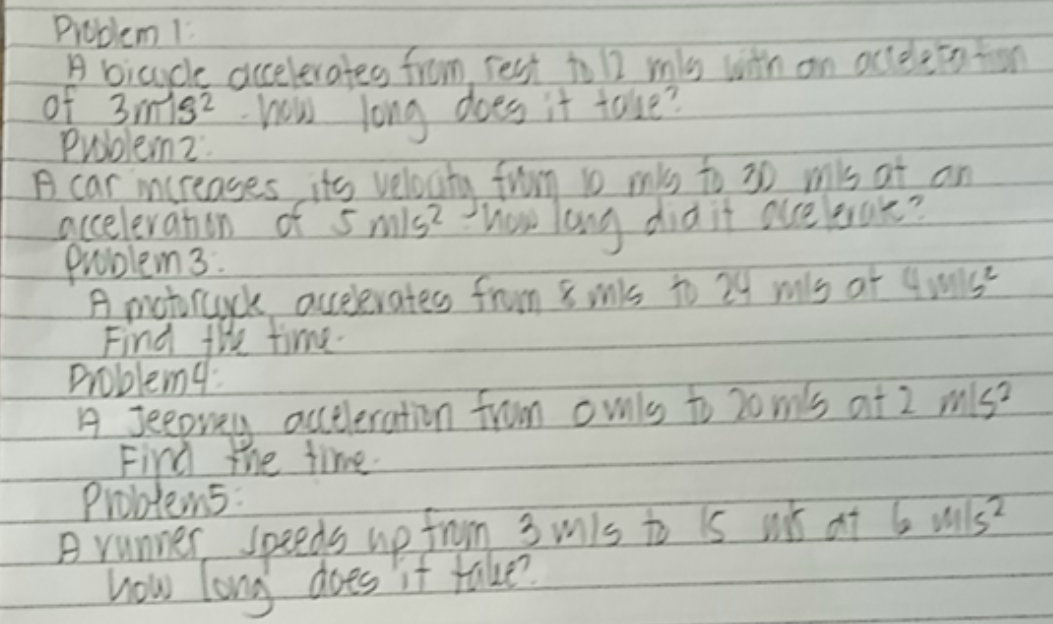 Problem 1:
A bicycle accelerates from rest to 12 m/s with an acceleration
of 3m/s². how long does it take?
Problem 2:
A car increases its velocity from 10 m/s to 30 m/s at an
acceleration of 5 m/s² how long did it accelerate?
Problem 3:
A motorcycle accelerates from 8 m/s to 24 m/s at 4 m/s²
Find the time.
Problem 4:
A Jeepney acceleration from 0 m/s to 20 m/s at 2 m/s²
Find the time.
Problem 5:
A runner speeds up from 3 m/s to 15 m/s at 6 m/s²
how long does it take?